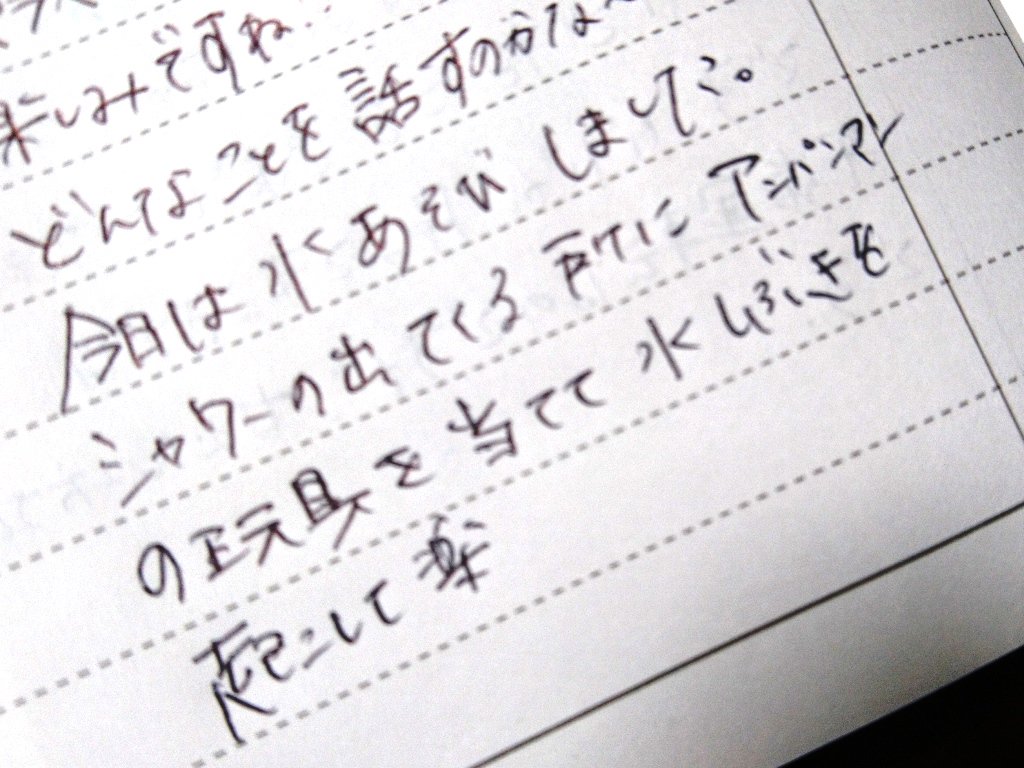 楽しみですね‥
どんなことを話すのかな〜
今日は水あそびしました。
シャワーの出てくる所にアンパンマン
の玩具を当てて水しぶきを
起こして楽